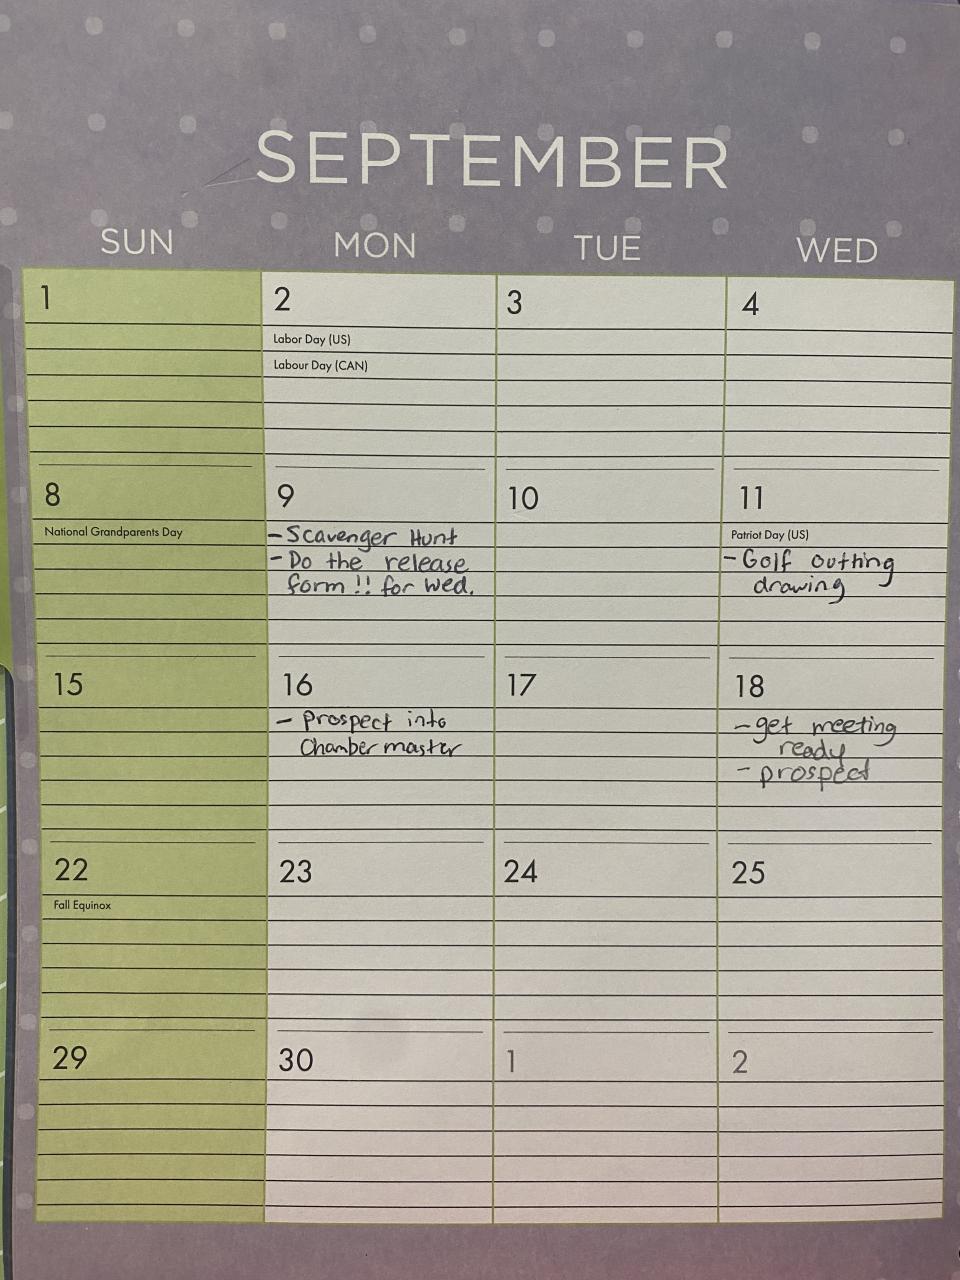 SEPTEMBER
SUN MON TUE WED
1 2 3 4
Labor Day (US)
Labour Day (CAN)
8 9 10 11
National Grandparents Day
- Scavenger Hunt
- Do the release
form !! for Wed.
Patriot Day (US)
- Golf outting
drawing
15 16 17 18
- Prospect into
Chamber master
- get meeting
ready
- prospect
22 23 24 25
Fall Equinox
29 30 1 2